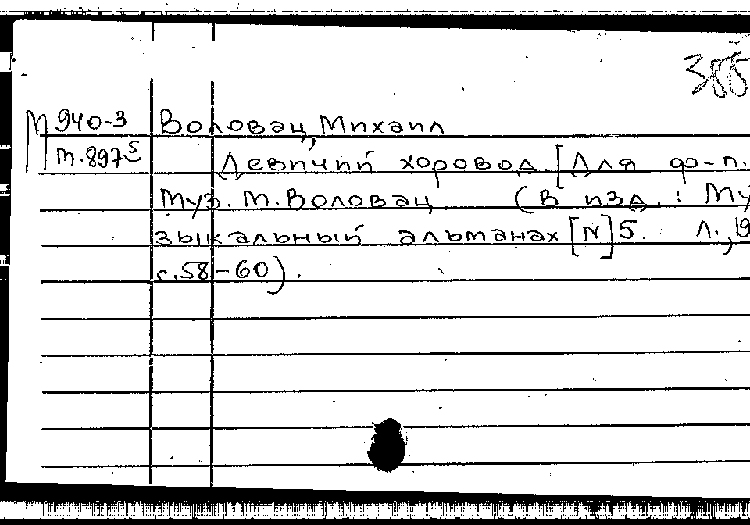 385
М 940-3 Воловац, Михаил
т. 897⁵ Девичий хоровод. [Для ф-п.
Муз. М. Воловац (В изд.: Му
зыкальный альманах [N] 5. Л., 19
с. 58-60).